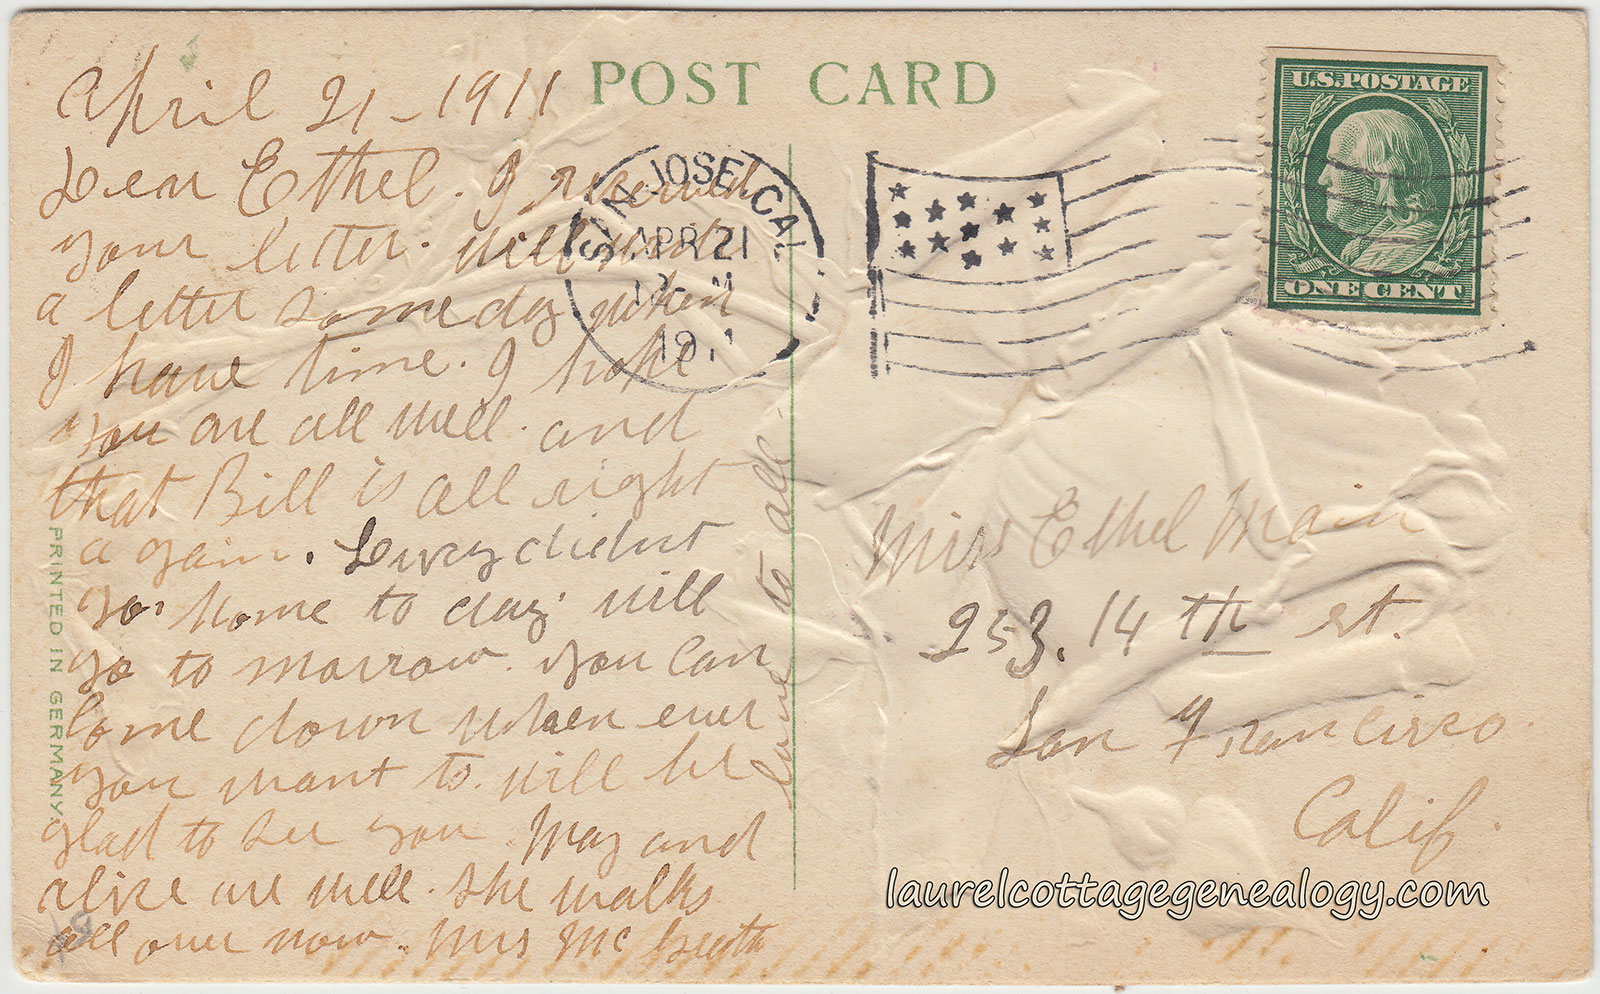 POST CARD
April 21 - 1911
Dear Ethel. I received
your letter. will send
a letter some day when
I have time. I hope
you are all well. and
that Bill is all right
again. Dewey didnt
go. home to day. will
go to morrow. you can
come down when ever
you want to. will be
glad to see you. May and
alice are well. She walks
all over now. Mrs Mc
love to all.
PRINTED IN GERMANY.
SAN JOSE CAL
APR 21
191
U.S. POSTAGE
ONE CENT
Miss Ethel Main
253. 14 th st.
San Francisco.
Calif.
laurelcottagegenealogy.com